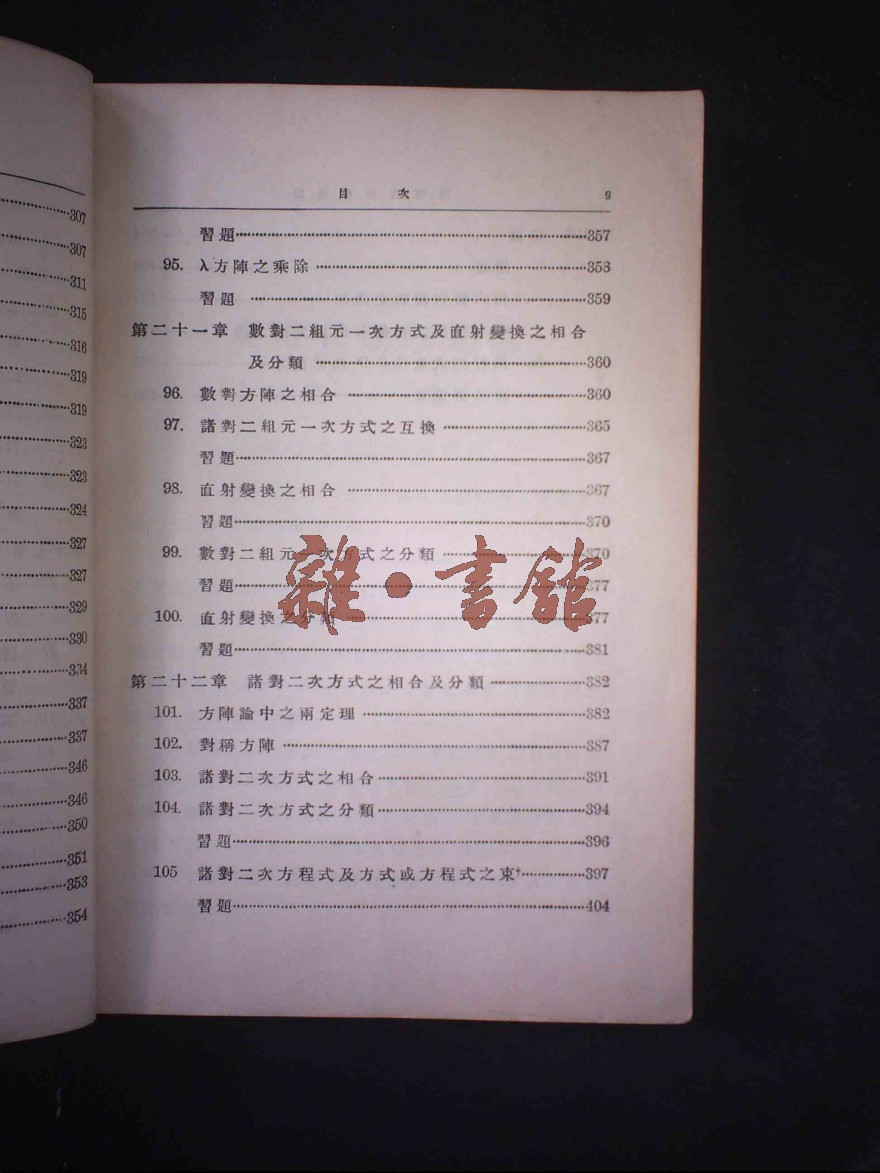 307
307
311
315
316
319
319
323
323
324
327
327
329
330
334
337
337
346
346
350
351
353
354
目 次 9
習題…357
95. λ方陣之乘除…358
習題…359
第二十一章 數對二組元一次方式及直射變換之相合
及分類…360
96. 數對方陣之相合…360
97. 諸對二組元一次方式之互換…365
習題…367
98. 直射變換之相合…367
習題…370
99. 數對二組元一次方式之分類…370
習題…377
100. 直射變換之分類…377
習題…381
雜·書館
第二十二章 諸對二次方式之相合及分類…382
101. 方陣論中之兩定理…382
102. 對稱方陣…387
103. 諸對二次方式之相合…391
104. 諸對二次方式之分類…394
習題…396
105 諸對二次方程式及方式或方程式之束†…397
習題…404